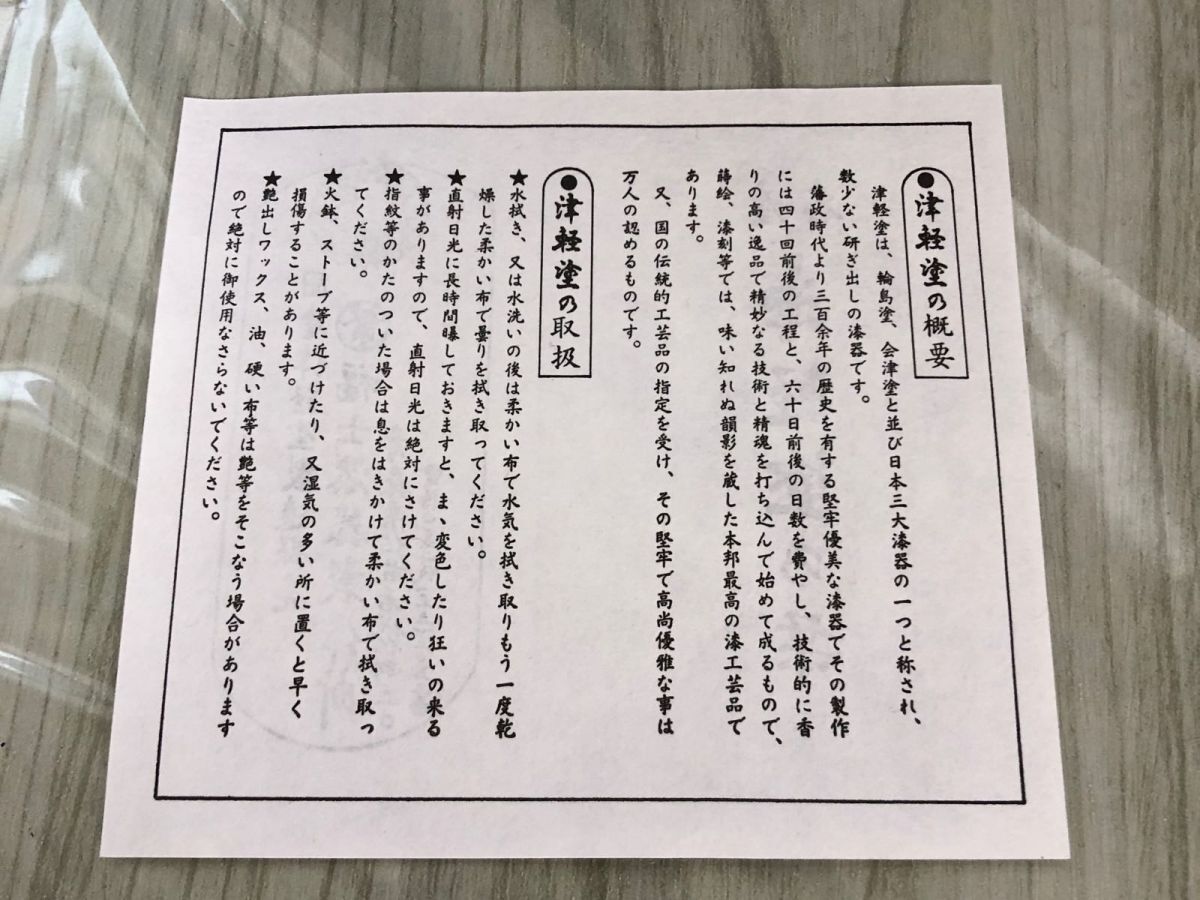 ●津軽塗の概要
津軽塗は、輪島塗、会津塗と並び日本三大漆器の一つと称され、
数少ない研ぎ出しの漆器です。
藩政時代より三百余年の歴史を有する堅牢優美な漆器でその製作
には四十回前後の工程と、六十日前後の日数を費やし、技術的に香
りの高い逸品で精妙なる技術と精魂を打ち込んで始めて成るもので、
蒔絵、漆刻等では、味い知れぬ韻影を蔵した本邦最高の漆工芸品で
あります。
又、国の伝統的工芸品の指定を受け、その堅牢で高尚優雅な事は
万人の認めるものです。
●津軽塗の取扱
★水拭き、又は水洗いの後は柔かい布で水気を拭き取りもう一度乾
燥した柔かい布で曇りを拭き取ってください。
★直射日光に長時間曝しておきますと、まゝ変色したり狂いの来る
事がありますので、直射日光は絶対にさけてください。
★指紋等のかたのついた場合は息をはきかけて柔かい布で拭き取っ
てください。
★火鉢、ストーブ等に近づけたり、又湿気の多い所に置くと早く
損傷することがあります。
★艶出しワックス、油、硬い布等は艶等をそこなう場合があります
ので絶対に御使用なさらないでください。